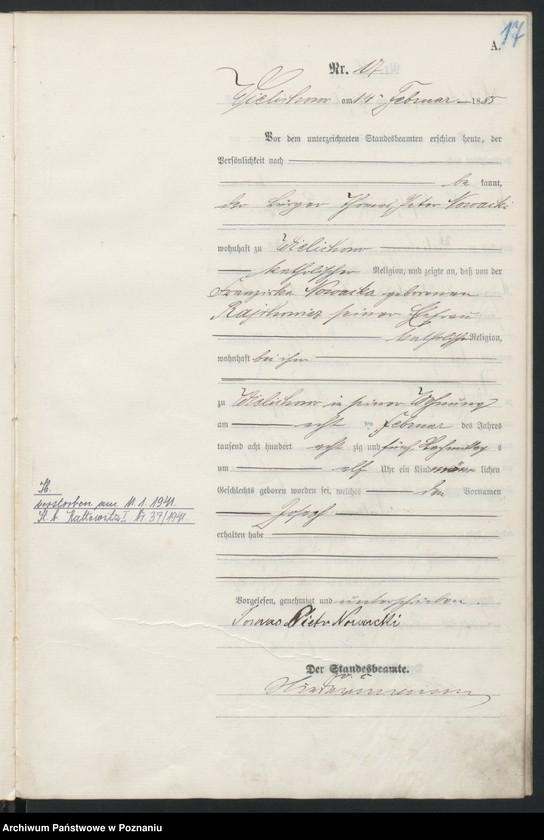 17
A.
Nr. 17
Wielichowo am 14. Februar 1885
Vor dem unterzeichneten Standesbeamten erschien heute, der
Persönlichkeit nach
be kannt,
der Bürger Peter Nowacki
wohnhaft zu Wielichowo
katholischer Religion, und zeigte an, daß von der
Franziska Nowacka geborenen
seiner Ehefrau
katholischer Religion,
wohnhaft bei ihm
zu Wielichowo in seiner Wohnung
am acht ten Februar des Jahres
tausend acht hundert acht zig und fünf Vormittags
um elf Uhr ein Kind männ lichen
Geschlechts geboren worden sei, welches den Vornamen
Joseph
erhalten habe
Vorgelesen, genehmigt und unterschrieben.
Piotr Nowacki
Der Standesbeamte.
St.
verstorben am 11.1.1941.
St. A. Kattowitz I Nr 37/1941.
Archiwum Państwowe w Poznaniu